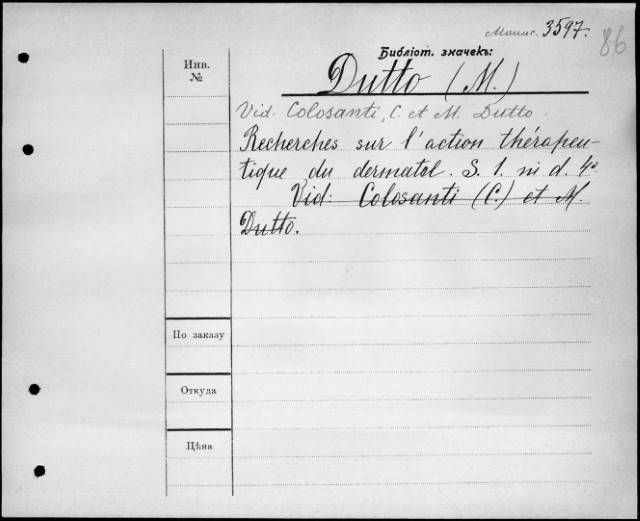 3597.
86
Инв.
№
Библіот. значекъ:
Dutto (M.)
Vid. Colosanti, C. et M. Dutto.
Recherches sur l'action thérapeu-
tique du dermatol. S. l. ni d. 4º
Vid: Colosanti (C.) et M.
Dutto.
По заказу
Откуда
Цѣна